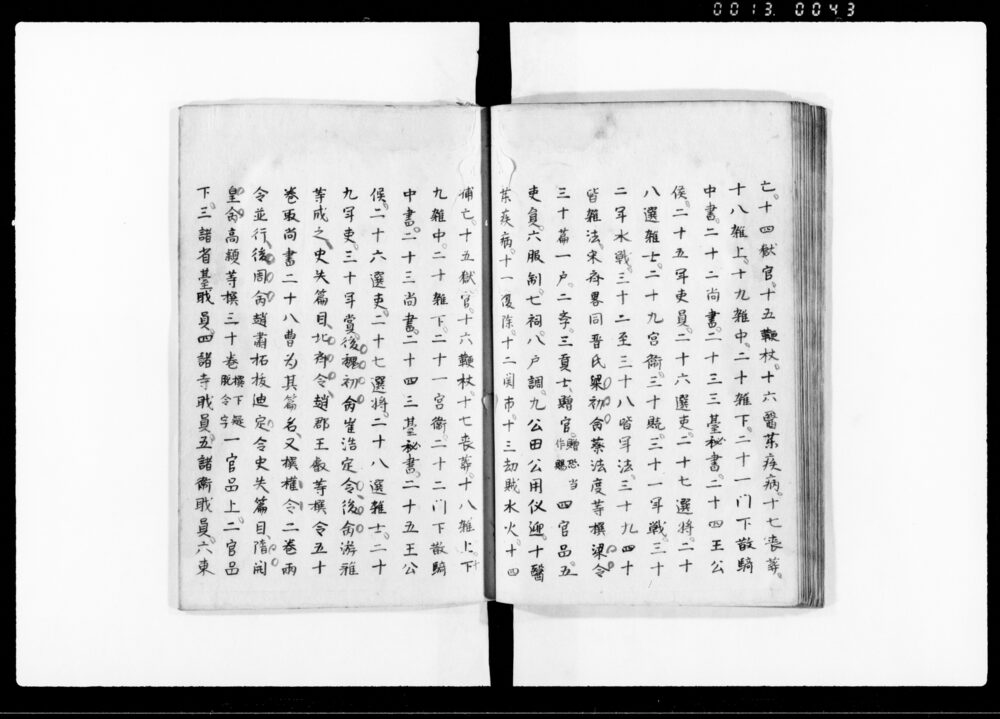 0013. 0043
亡。十四獄官。十五鞭杖。十六醫藥疾病。十七喪葬。
十八雜上。十九雜中。二十雜下。二十一門下散騎
中書。二十二尚書。二十三三臺秘書。二十四王公
侯。二十五軍吏員。二十六選吏。二十七選將。二十
八選雜士。二十九宮衛。三十贖。三十一軍戰。三十
二軍水戰。三十二至三十八皆軍法。三十九四十
皆雜法。宋齊畧同晋氏。梁初命蔡法度等撰梁令
三十篇一戶。二孝。三夏士贈官。贈恐當作賜四官品。五
吏員。六服制。七祠。八戶調。九公田公用仪迎。十醫
藥疾病。十一復除。十二関市。十三劫賊水火。十四
補亡。十五獄官。十六鞭杖。十七喪葬。十八雜上。下
九雜中。二十雜下。二十一宮衛。二十二门下散騎
中書。二十三尚書。二十四三基秘書。二十五王公
侯。二十六選吏。二十七選將。二十八選雜士。二十
九軍吏。三十軍賞。後魏初命崔浩定令。後命游雅
等成之。史失篇目。北齊令趙郡王叡等撰令五十
巻取尚書二十八曹为其篇名。又撰權令二巻兩
令並行。後周命趙肅拓抜迪定令。史失篇目。隋開
皇命高頴等撰三十巻撰下疑脱令字一官品上。二官品
下。三諸省臺職員。四諸寺職員。五諸衛職員。六東